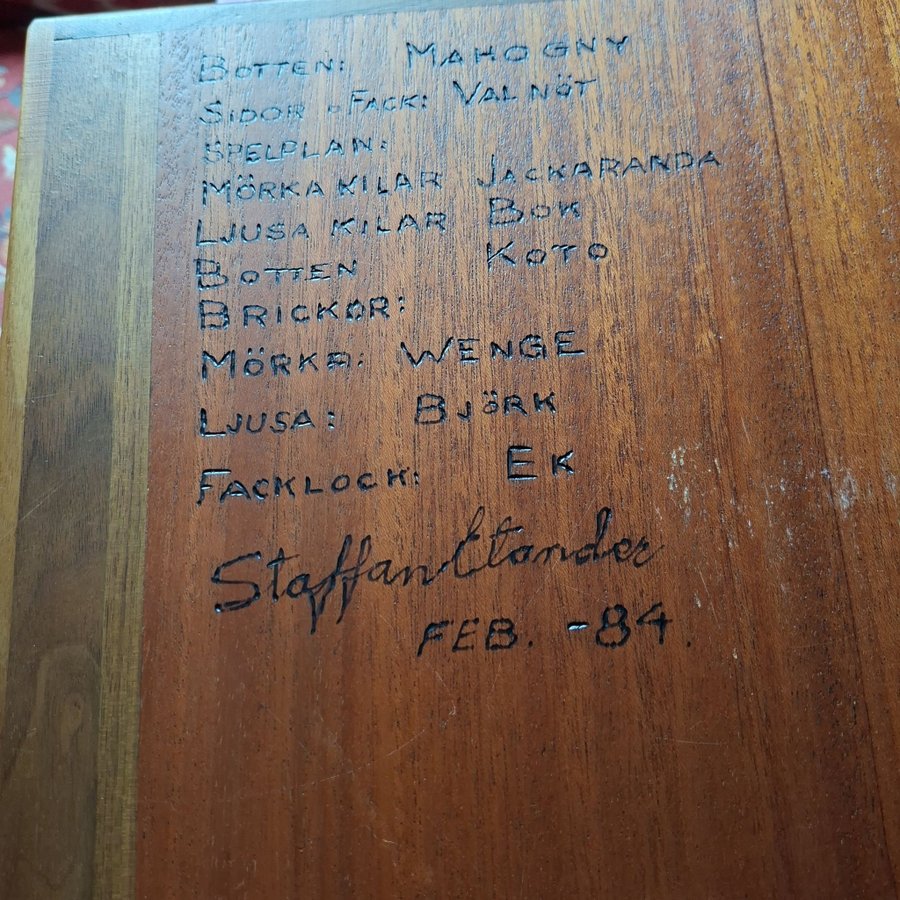 BOTTEN: MAHOGNY
SIDOR - FACK: VALNÖT
SPELPLAN:
MÖRKA KILAR JACKARANDA
LJUSA KILAR BOK
BOTTEN KOTO
BRICKOR:
MÖRKA: WENGE
LJUSA: BJÖRK
FACKLOCK: EK
Staffan
FEB. -84.